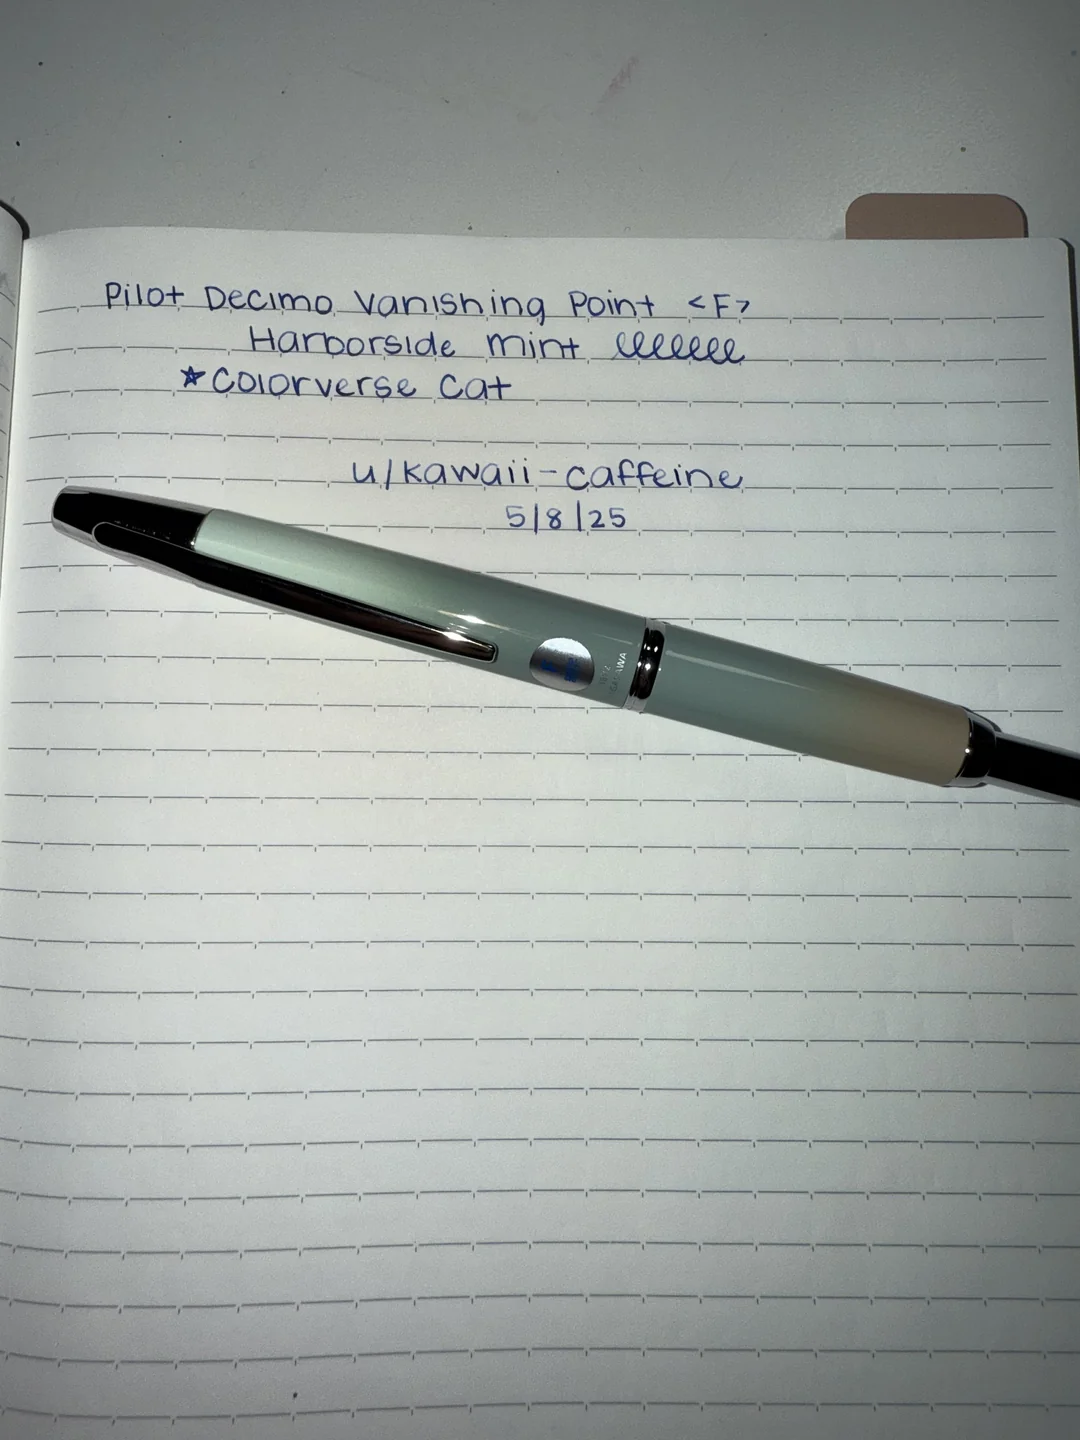 Pilot Decimo Vanishing Point <F>
Harborside mint
★ Colorverse Cat
u/kawaii-caffeine
5/8/25